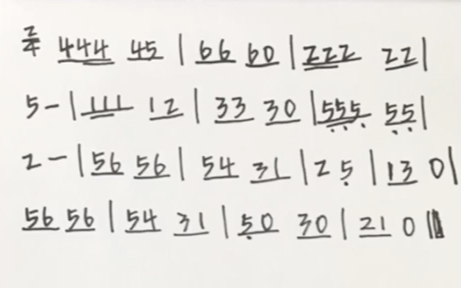 2/4 444 45 | 66 60 | 222 22 |
5 - | 111 12 | 33 30 | 555 55 |
2 - | 56 56 | 54 31 | 2 5 | 13 0 |
56 56 | 54 31 | 50 30 | 21 0 ||